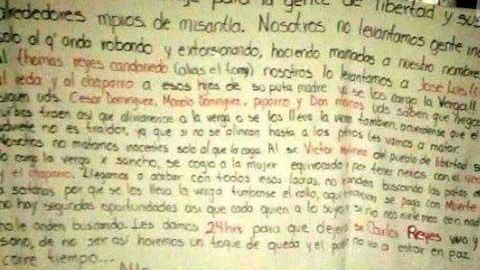 para la gente de libertad y sus
alrededores mpios. de misantla. Nosotros no levantamos gente
solo al q' anda robando y extorsonando, haciendo mamadas a nuestro nombre
al (thomas reyes candanedo (alias el tomy) nosotros lo levantamos a Jose Luis
y al chaparro a esos hijos de su puta madre ya se los cargo la Verga!!
siguen uds. Cesar Dominguez, Marcelo Dominguez, piporro y Don marcos uds saben que
traen asi que alivianence a la verga o se los lleva la verga tambien, acuerdense que el
no es traidor, ya que si no se alinean hasta a los perros les vamos a matar.
Nosotros no matamos inocentes solo al que la caga. Al sr Victor del pueblo de libertad se
lo cargo la verga x sancho, se cogio a la mujer equivocada y por tener nexos con el
y el chaparro. Llegamos a acabar con todas esas lacras, no anden buscando las patas
a satanas por que se los lleva la verga tumbense el rollo, aqui la traicion se paga con Muerte
no hay segundas oportunidades asi que cada quien a lo suyo si no nos metemos con nadie
no le anden buscando. Les damos 24hrs para que dejen a Carlos Reyes vivo y
sano, de no ser asi haremos un toque de queda y el pueblo no va a estar en paz
corre tiempo...